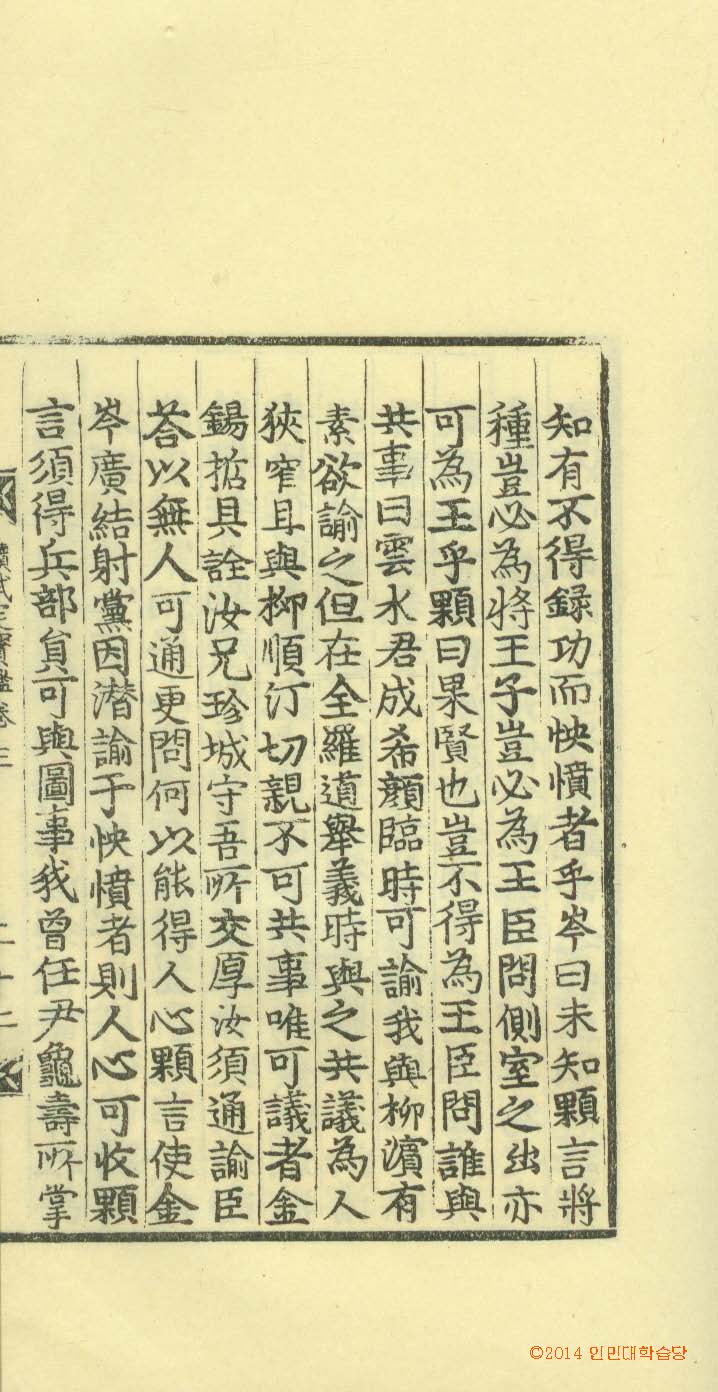 知有不得録功而怏憤者乎岑曰未知顆言將
種豈必為將王子豈必為王臣問側室之出亦
可為王乎顆曰果賢也豈不得為王臣問誰與
共事曰雲水君成希顔臨時可諭我與柳濱有
素欲諭之但在全羅道舉義時與之共議為人
狹窄且與柳順汀切親不可共事唯可議者金
錫掂具詮汝兄珍城守吾所交厚汝須通諭臣
荅以無人可通更問何以能得人心顆言使金
岑廣結射黨因潜諭于怏憤者則人心可收顆
言須得兵部負可與圖事我曾任尹龜壽所掌
續武定寳鑑卷三
二十二
©2014 인민대학습당